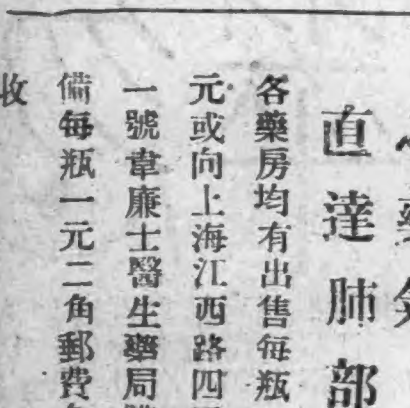 直達肺部
各藥房均有出售每瓶
元或向上海江西路四
一號韋廉士醫生藥局
備每瓶一元二角郵費
收